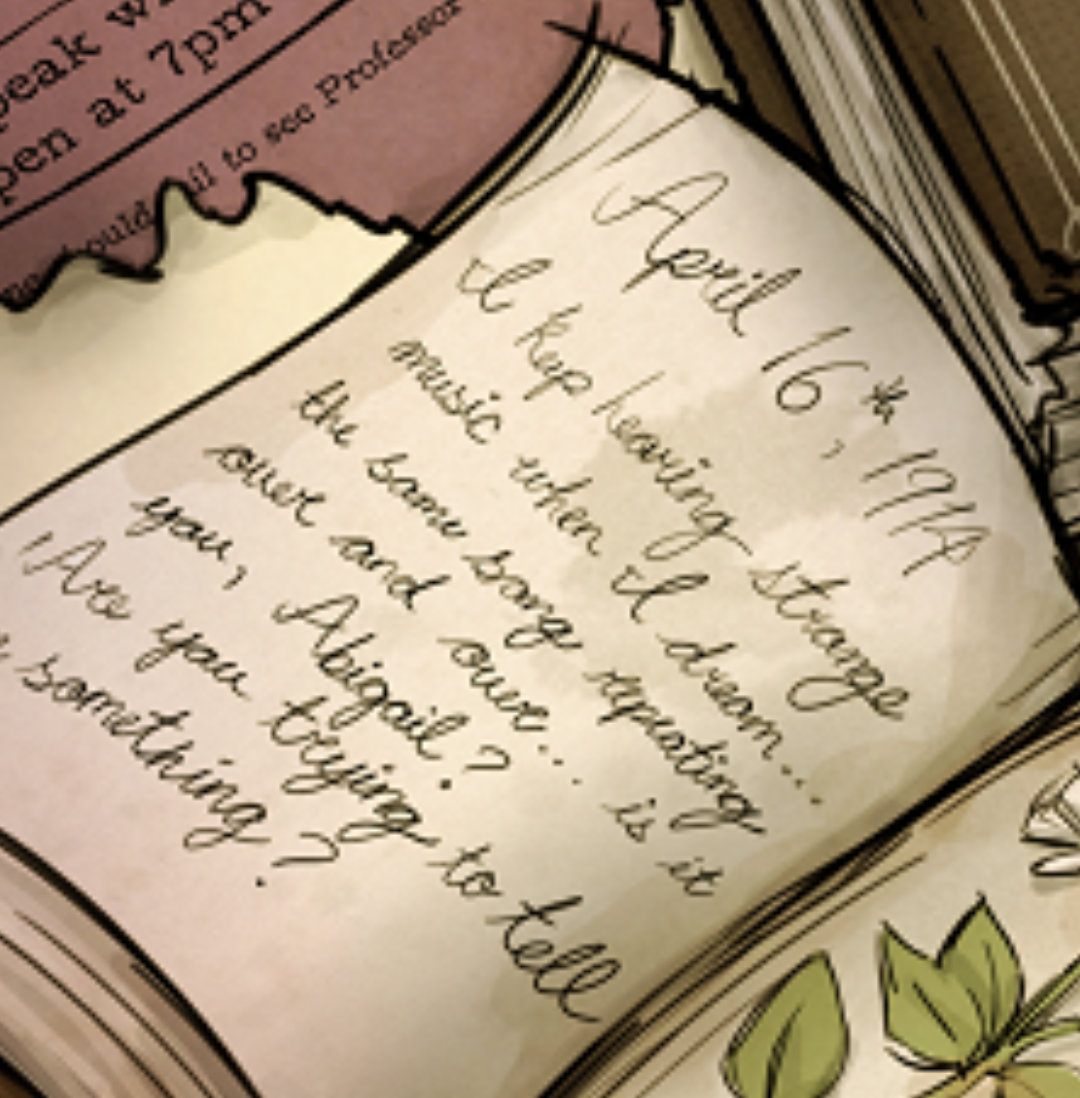 peak w
pen at 7pm
ould ail to see Professor
April 16th, 1914
I keep hearing strange
music when I dream...
the same song repeating
over and over... is it
you, Abigail?
Are you trying to tell
something?